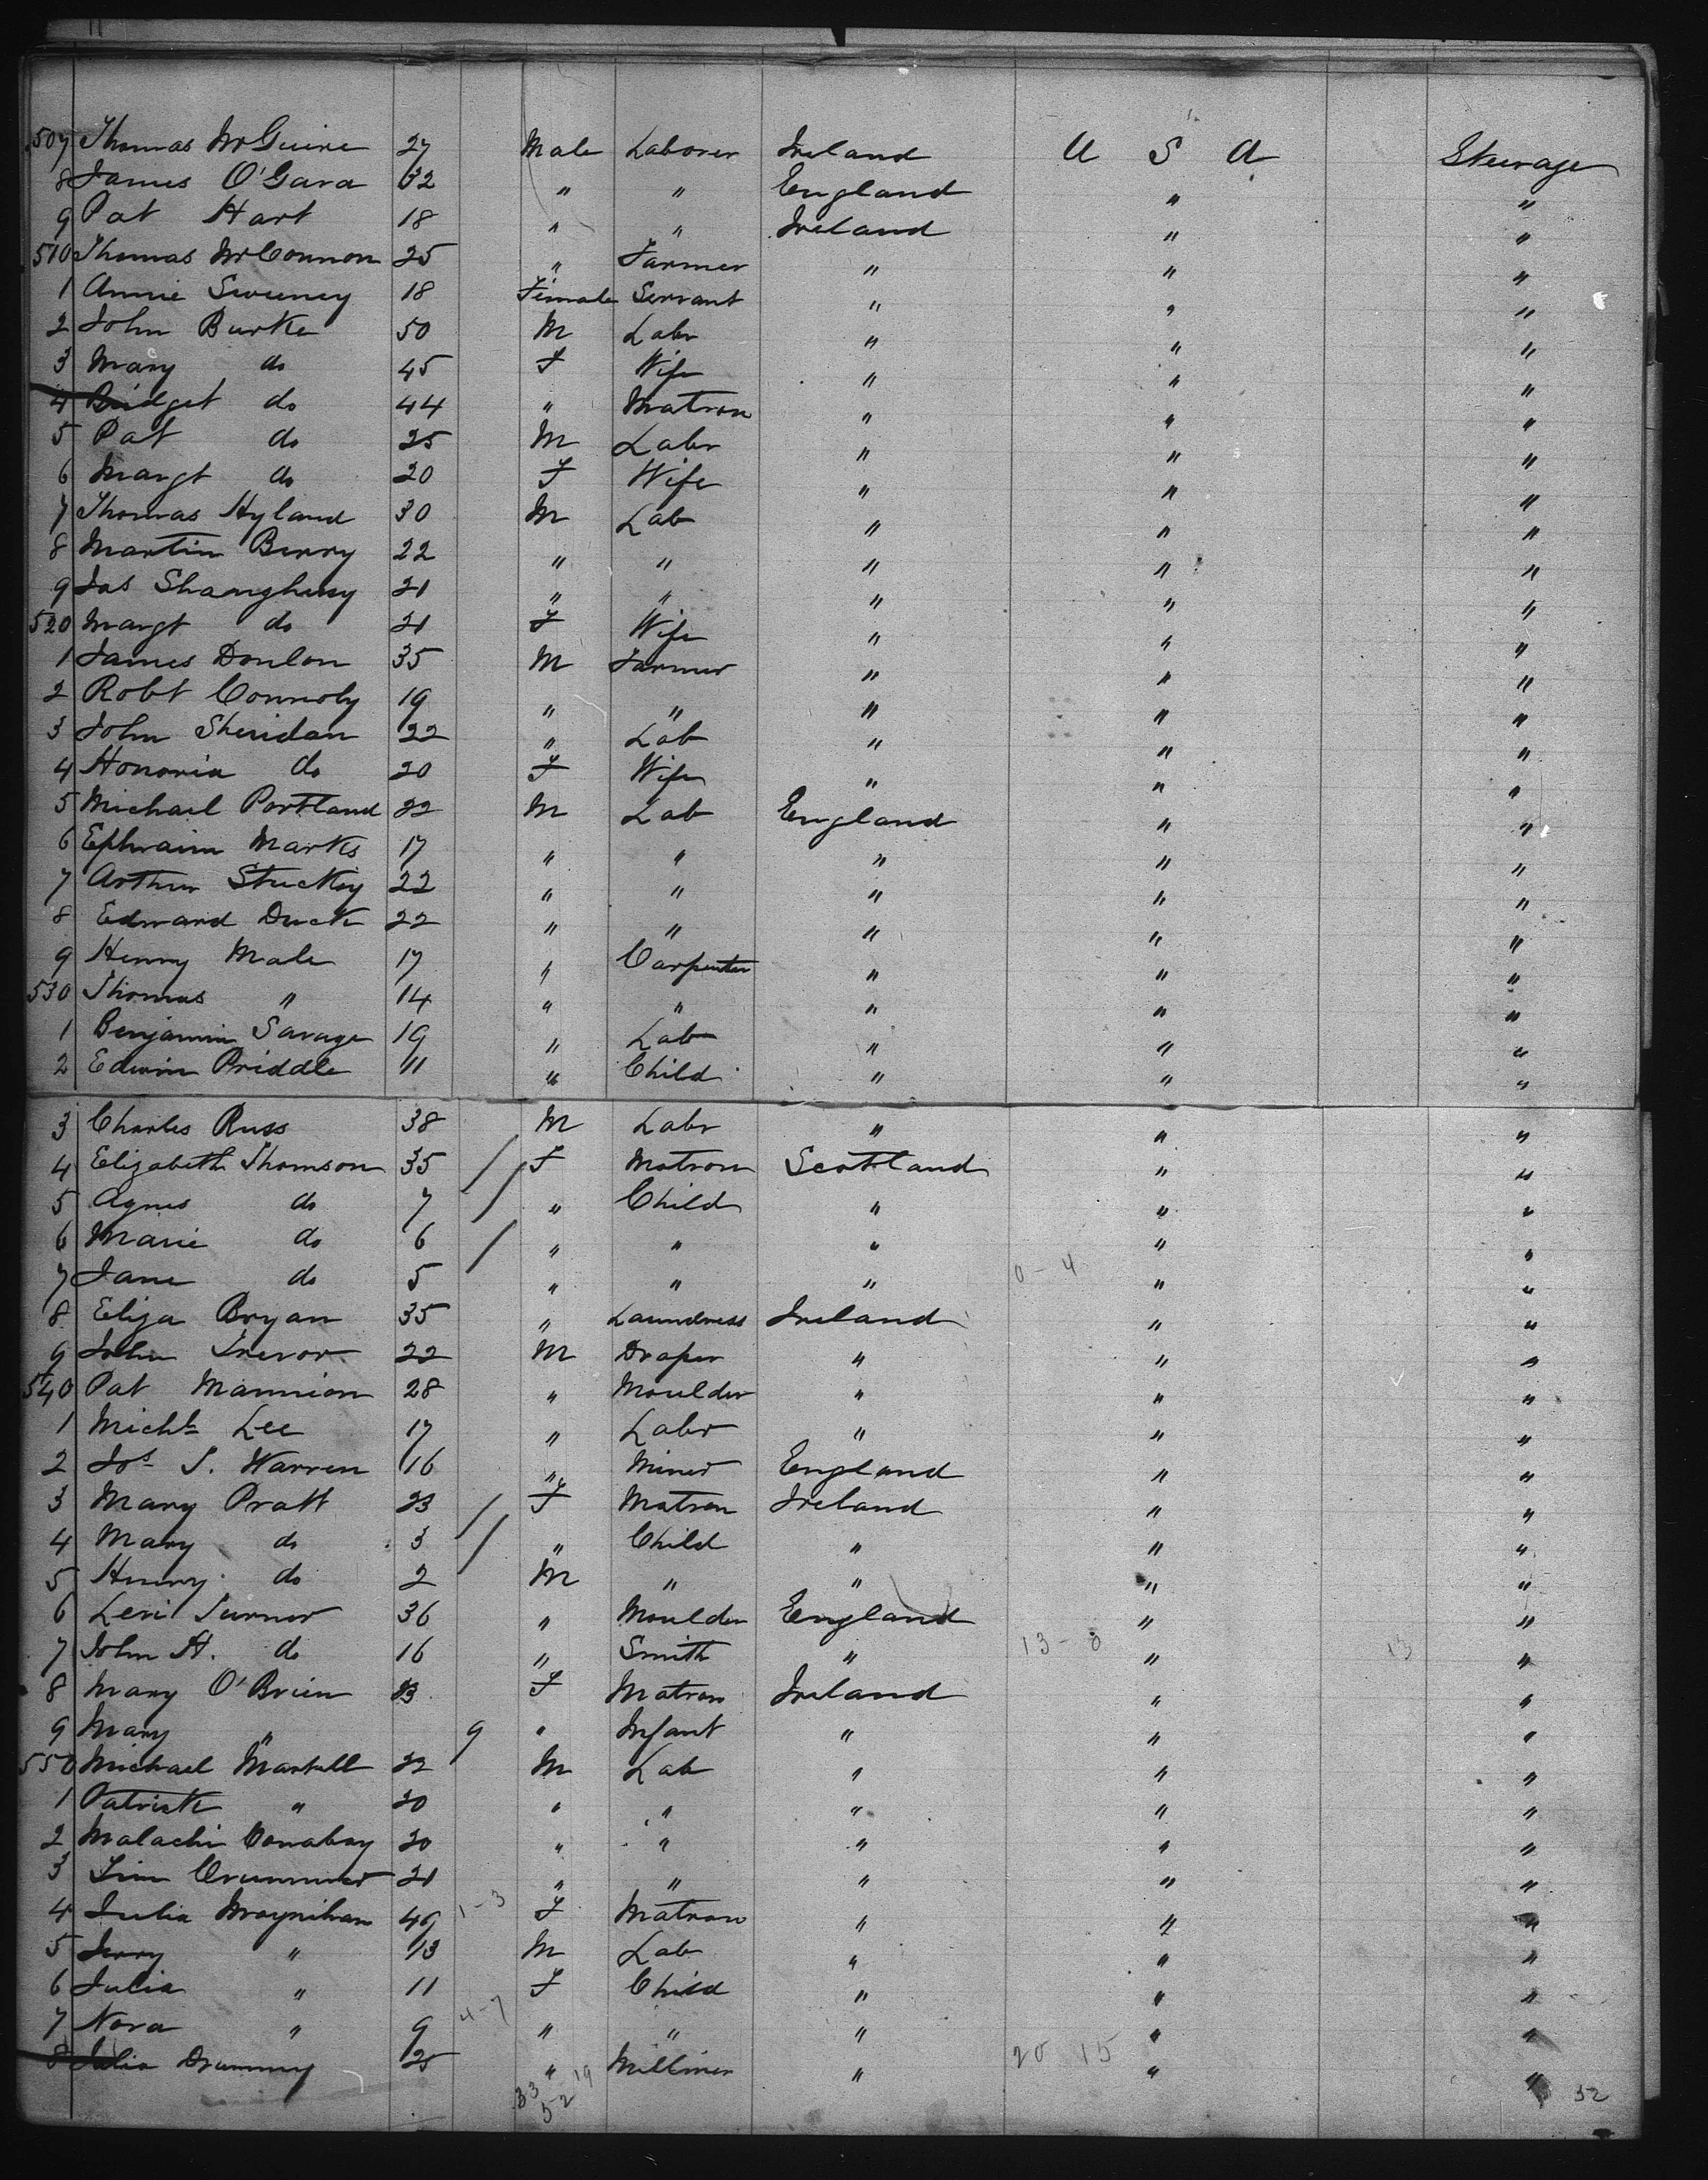 507 Thomas McGuire 27 Male Laborer Ireland U S A Steerage
8 James O'Gara 32 " " England " "
9 Pat Hart 18 " " Ireland " "
510 Thomas McConnon 25 " Farmer " " "
1 Annie Sweeney 18 Female Servant " " "
2 John Burke 50 M Labr " " "
3 Mary do 45 F Wife " " "
4 Bridget do 44 " Matron " " "
5 Pat do 25 M Labr " " "
6 Margt do 20 F Wife " " "
7 Thomas Hyland 30 M Lab " " "
8 Martin Berry 22 " " " " "
9 Jas Shaughnesy 21 " " " " "
520 Margt do 21 F Wife " " "
1 James Donlon 35 M Farmer " " "
2 Robt Connoly 19 " " " " "
3 John Sheridan 22 " Lab " " "
4 Honoria do 20 F Wife " " "
5 Michael Portland 22 M Lab England " "
6 Ephraim Marks 17 " " " " "
7 Arthur Stuckey 22 " " " " "
8 Edward Duck 22 " " " " "
9 Henry Male 17 " Carpenter " " "
530 Thomas " 14 " " " " "
1 Benjamin Savage 19 " Lab " " "
2 Edwin Priddle 11 " Child " " "
3 Charles Russ 38 M Labr " " "
4 Elizabeth Thomson 35 F Matron Scotland " "
5 Agnes do 7 " Child " " "
6 Marie do 6 " " " " "
7 Jane do 5 " " " 0-4 " "
8 Eliza Bryan 35 " Laundress Ireland " "
9 John Trevor 22 M Draper " " "
540 Pat Mannion 28 " Moulder " " "
1 Michl Lee 17 " Labr " " "
2 Jos S. Warren 16 " Miner England " "
3 Mary Pratt 23 F Matron Ireland " "
4 Mary do 3 " Child " " "
5 Henry do 2 M " " " "
6 Levi Turner 36 " Moulder England " "
7 John H. do 16 " Smith " 13-8 " 13 "
8 Mary O'Brien 23 F Matron Ireland " "
9 Mary " 9 " Infant " " "
550 Michael Martell 22 M Lab " " "
1 Patrick " 20 " " " " "
2 Malachi Conaboy 20 " " " " "
3 Tim 21 " " " " "
4 Julia Moynihan 49 1-3 F Matron " " "
5 Jerry " 13 M Lab " " "
6 Julia " 11 F Child " " "
7 Nora " 9 4-7 " " " " "
8 Julia Drummy 25 " Milliner " 20 15 " "
33 19
52
52